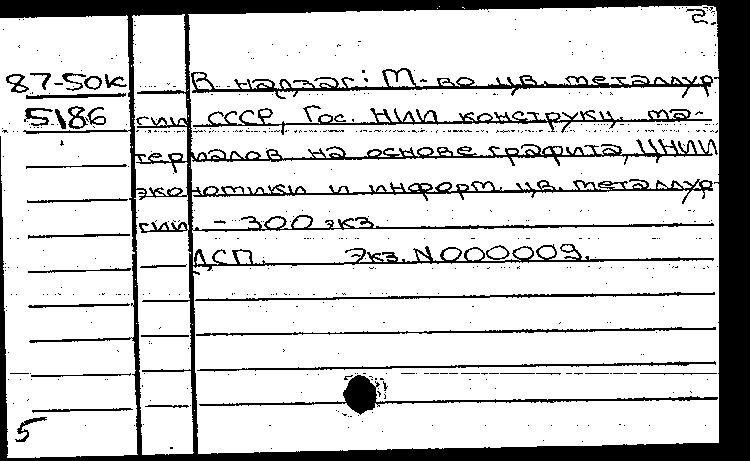 2.
87-50к В надзаг: М-во цв. металлур-
5186 гии СССР, Гос. НИИ конструкц. ма-
териалов на основе графита, ЦНИИ
экономики и информ. цв. металлур-
гии. - 300 экз.
ДСП. Экз. N000009.
5